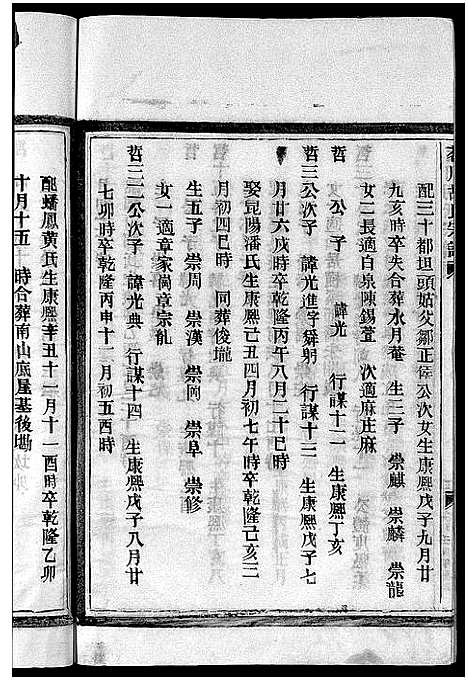 配三十都坦頭姑父鄒正侯公次女生康熙戊子九月廿
九亥時卒失合葬水月菴 生三子 崇麒 崇麟 崇龍
女二長適白泉陳錫萱 次適麻庄麻
哲 公子 諱光 行謀十二 生康熙丁亥
哲三公次子 諱光進字舜躬 行謀十三 生康熙戊子七
月廿六戌時卒乾隆丙午八月二十巳時
娶昆陽潘氏生康熙己丑四月初七午時卒乾隆己亥三
月初四巳時 同葬俊壠
生五子 崇周 崇漢 崇岡 崇阜 崇修
女一適章家崗章宗能
哲三二公次子 諱光典 行謀十四 生康熙戊子八月廿
七卯時卒乾隆丙申十二月初五酉時
配蟠鳳黃氏生康熙辛丑十一月十一酉時卒乾隆乙卯
十月十五 時合葬南山底屋基後墈